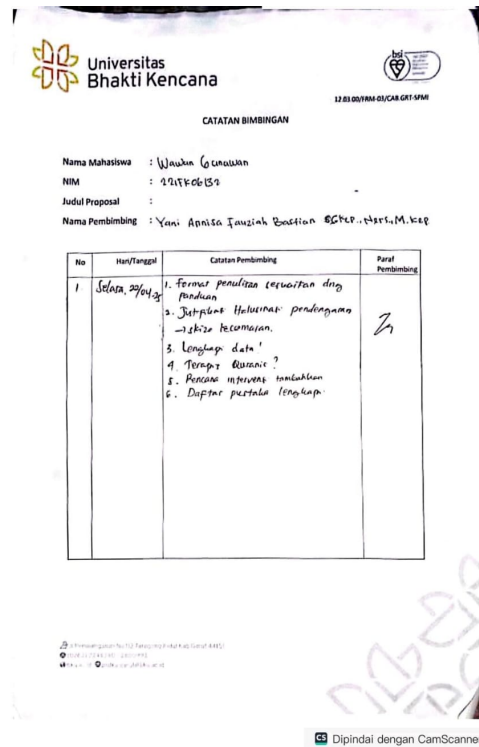 Universitas
Bhakti Kencana
bsi
12.03.00/FRM-03/CAB.GRT-SPMI
CATATAN BIMBINGAN
Nama Mahasiswa : Wawan Gunawan
NIM : 221FK06132
Judul Proposal :
Nama Pembimbing : Yani Annisa Fauziah Bastian S.Kep., Ners., M.Kep
No Hari/Tanggal Catatan Pembimbing Paraf Pembimbing
1 Selasa, 22/04.25 1. Format penulisan sesuaikan dng
panduan
2. Halusinasi pendengaran
→ skizo
3. Lengkapi data!
4. Terapi Quranic?
5. Rencana intervensi tambahkan
6. Daftar pustaka lengkapi.
CS Dipindai dengan CamScanne